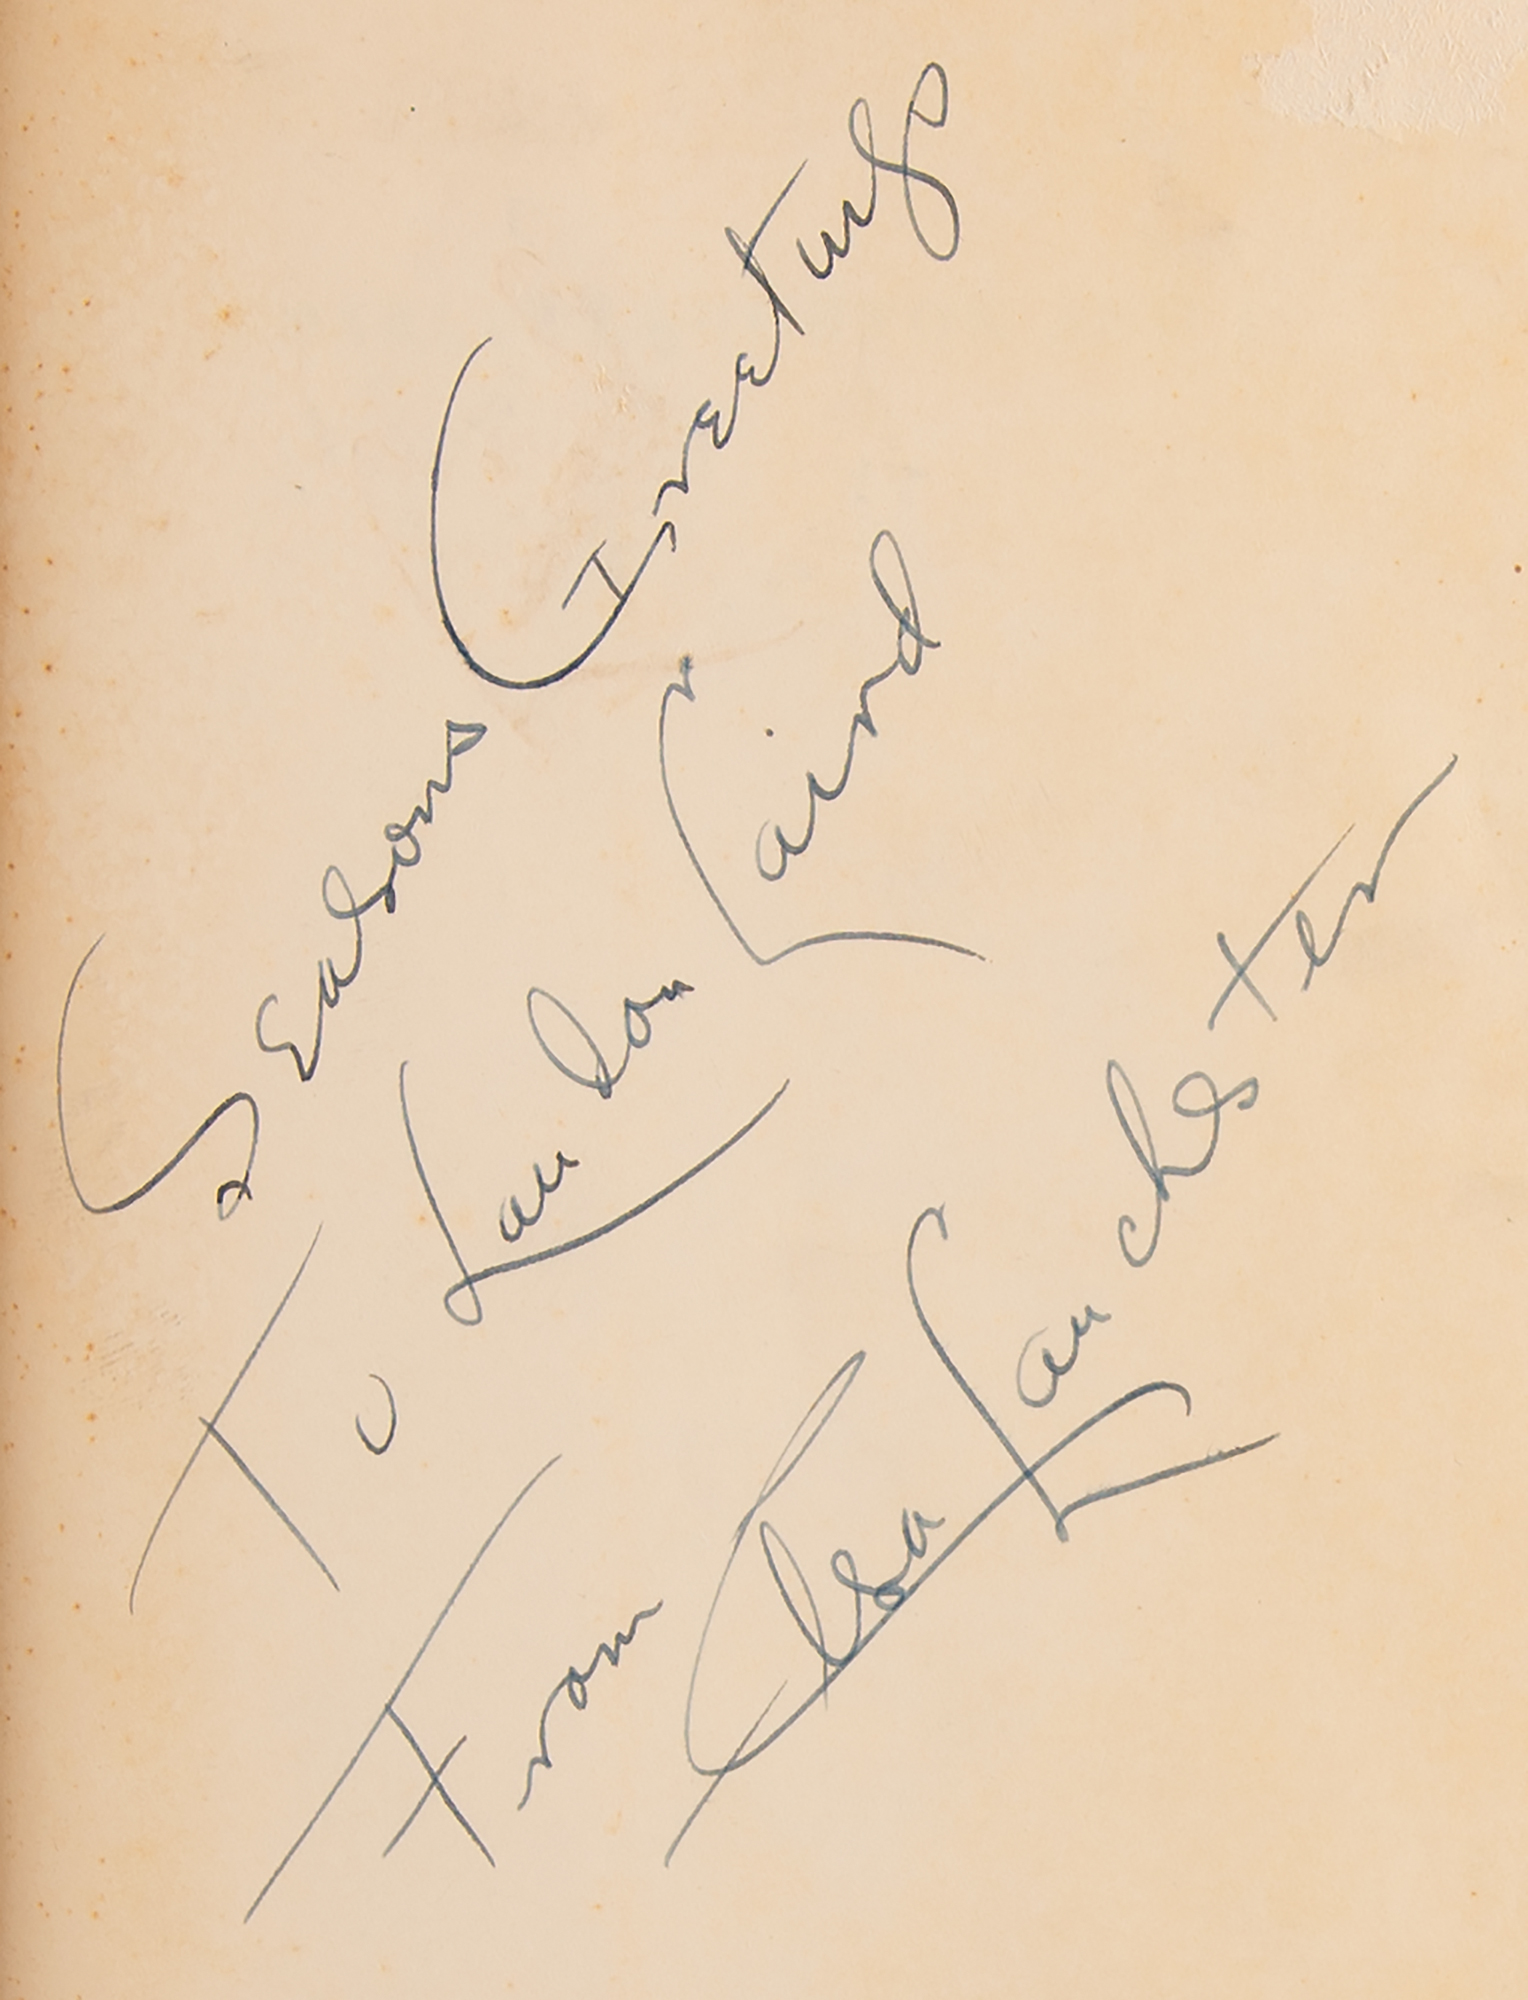 Seasons Greetings
To Landon Laird
From Elsa Lanchester